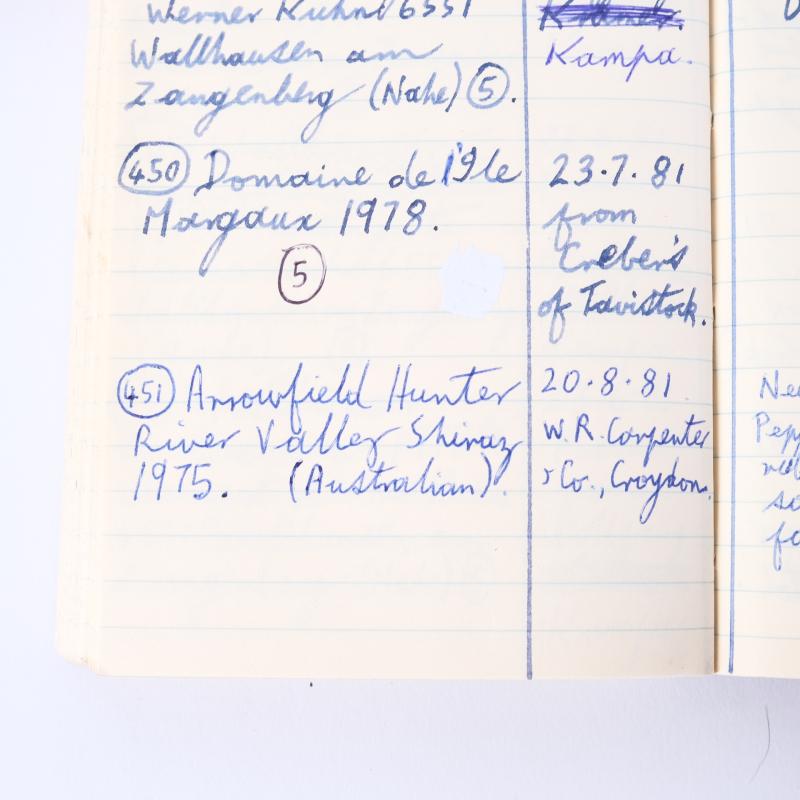 Werner Kuhn 6551
Wallhausen am
Zangenberg (Nahe) 5.
Kampa.
450 Domaine de l'Ile
Margaux 1978.
5
23.7.81
from
Creber's
of Tavistock.
451 Arrowfield Hunter
River Valley Shiraz
1975. (Australian).
20.8.81.
W.R. Carpenter
& Co., Croydon.